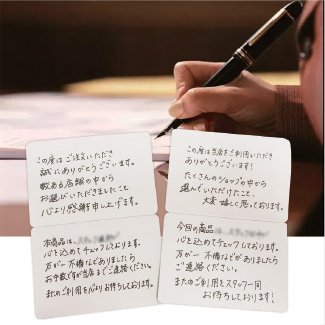 この度はご注文いただき
誠にありがとうございます。
数ある店舗の中から
お選びいただきましたこと
心より感謝申し上げます。
本商品は、
心を込めてチェックしております。
万が一不備などありましたら
お手数ですが当店までご連絡ください。
またのご利用を心よりお待ちしております。
この度は当店をご利用いただき
ありがとうございます!
たくさんのショップの中から
選んでいただけたこと、
大変嬉しく思っております。
今回の商品
心を込めてチェックしております。
万が一不備などがありましたら
ご連絡ください。
またのご利用をスタッフ一同
お待ちしております!